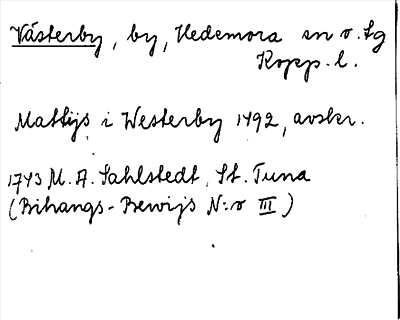 Västerby, by, Hedemora sn o. Lg
Kopp. l.
Mattijs i Westerby 1492, avskr.
1743 M. A. Sahlstedt, St. Tuna
(Bihangs-Bewijs N:o III)